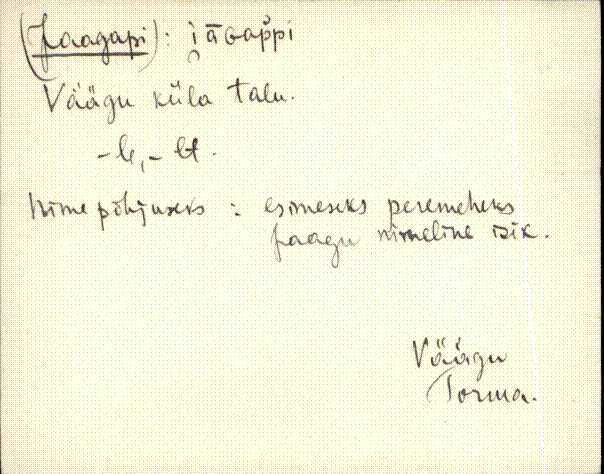 (Jaagapi): i̯āGappi
Väägu küla talu.
-le, -lt.
Nime põhjuseks: esimeseks peremeheks
Jaagu nimeline isik.
Väägu
Torma.